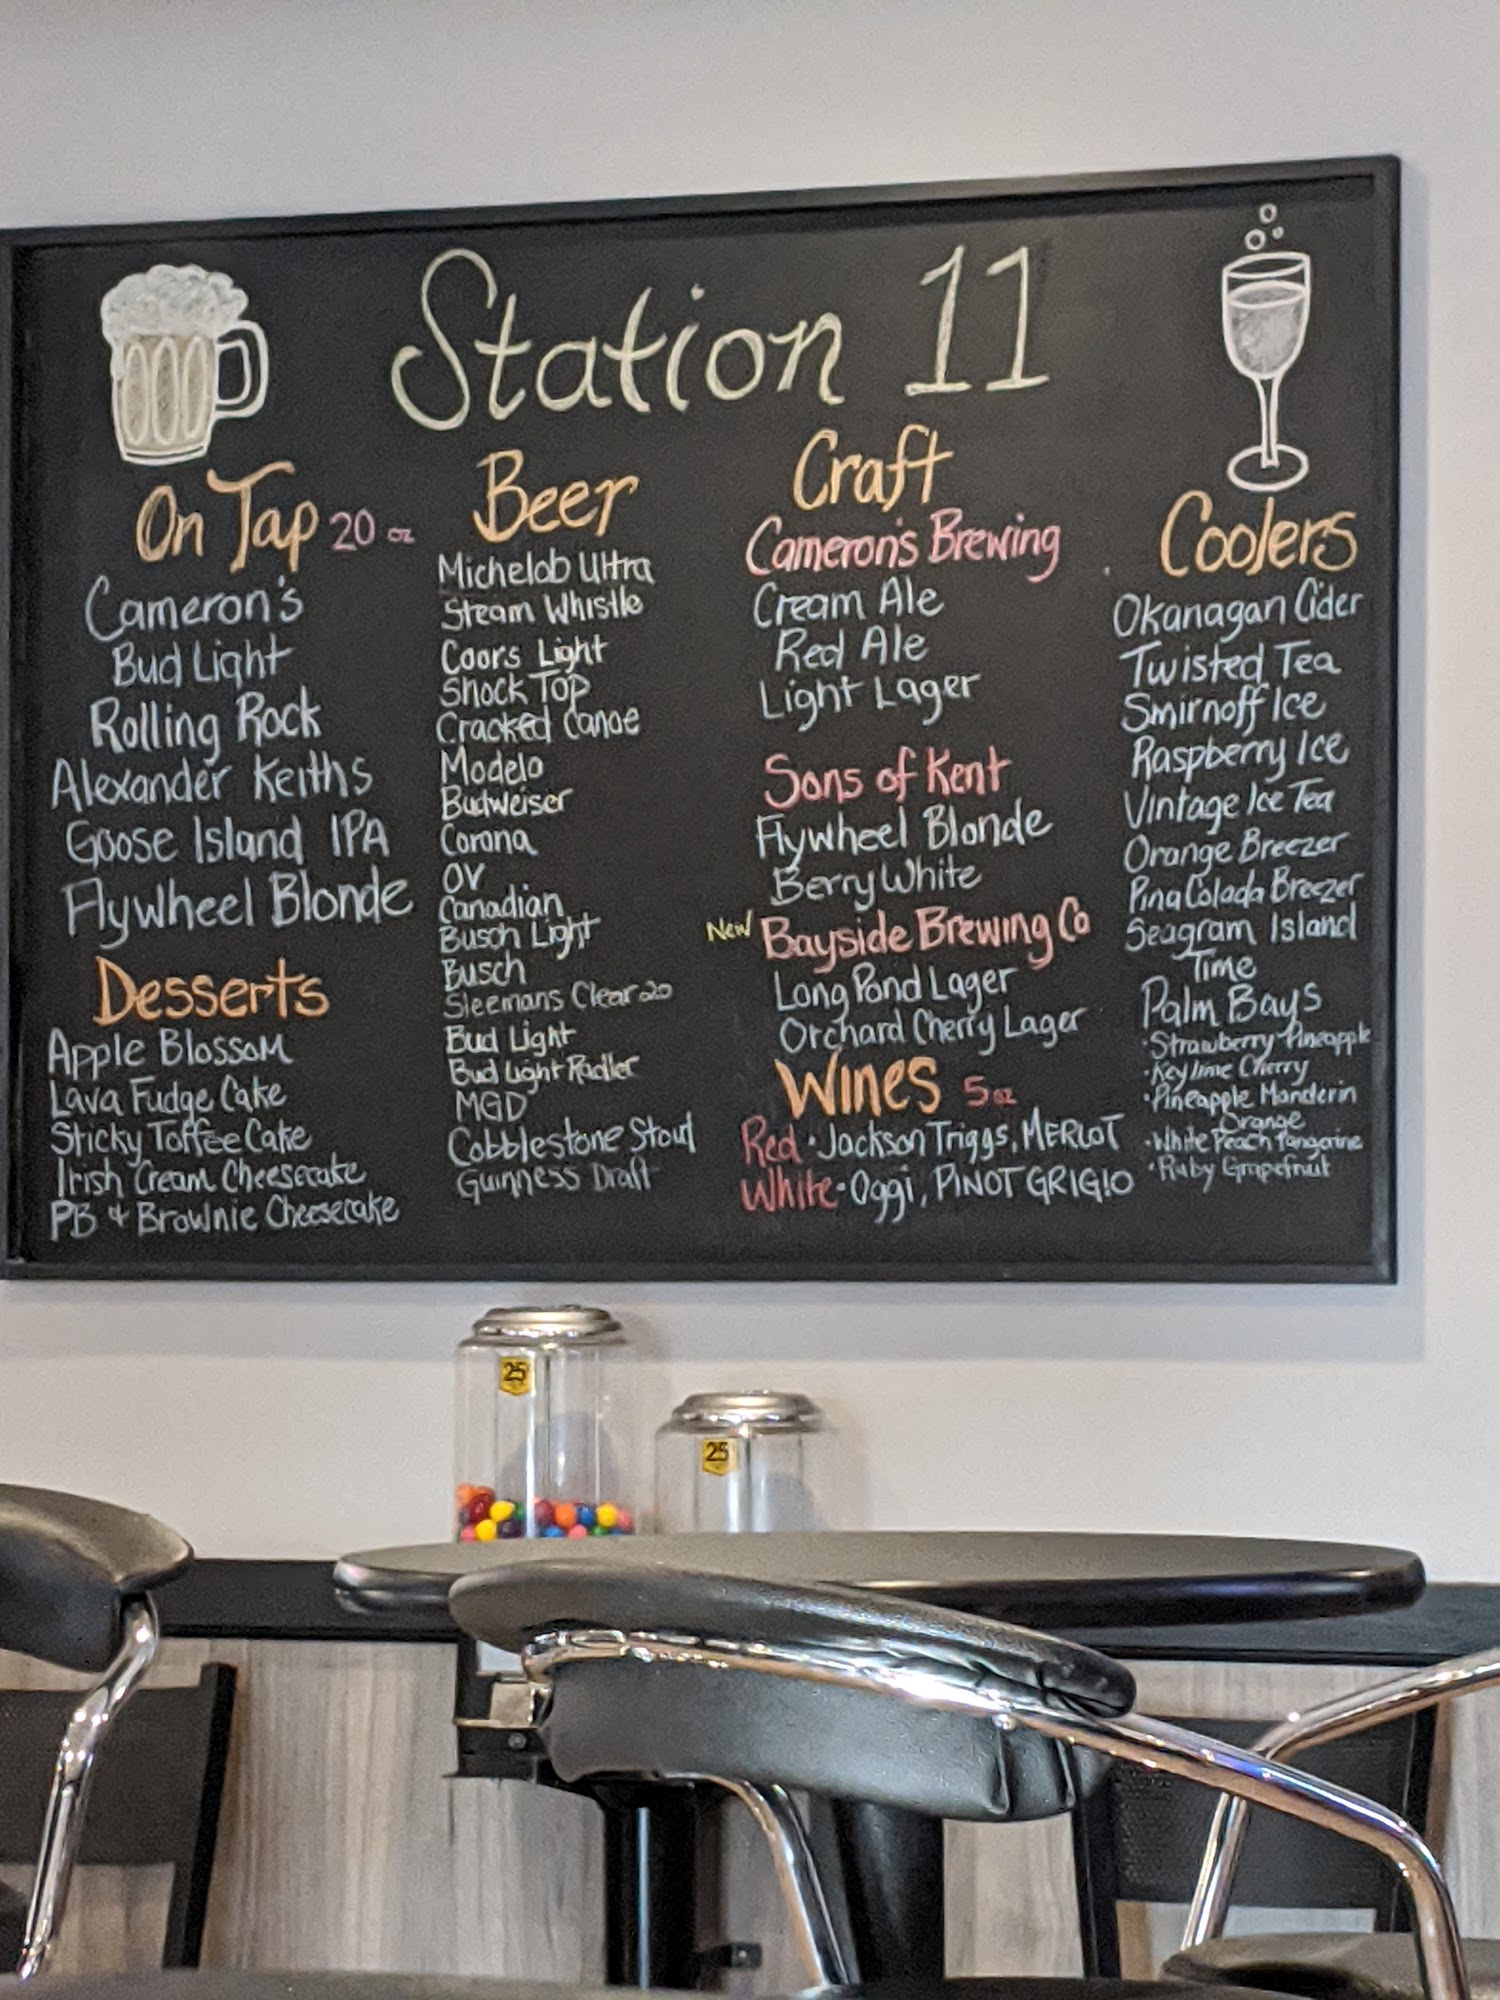 Station 11
On Tap 20 oz
Cameron's
Bud Light
Rolling Rock
Alexander Keiths
Goose Island IPA
Flywheel Blonde
Desserts
Apple Blossom
Lava Fudge Cake
Sticky Toffee Cake
Irish Cream Cheesecake
PB + Brownie Cheesecake
Beer
Michelob Ultra
Steam Whistle
Coors Light
Shock Top
Cracked Canoe
Modelo
Budweiser
Corona
OV
Canadian
Busch Light
Busch
Sleemans Clear 20
Bud Light
Bud Light Radler
MGD
Cobblestone Stout
Guinness Draft
Craft
Cameron's Brewing
Cream Ale
Red Ale
Light Lager
Sons of Kent
Flywheel Blonde
Berry White
New Bayside Brewing Co
Long Pond Lager
Orchard Cherry Lager
Wines 5 oz
Red • Jackson Triggs, MERLOT
White • Oggi, PINOT GRIGIO
Coolers
Okanagan Cider
Twisted Tea
Smirnoff Ice
Raspberry Ice
Vintage Ice Tea
Orange Breezer
Pina Colada Breezer
Seagram Island
Time
Palm Bays
• Strawberry Pineapple
• Key lime Cherry
• Pineapple Manderin
Orange
• White Peach Tangerine
• Ruby Grapefruit
25
25